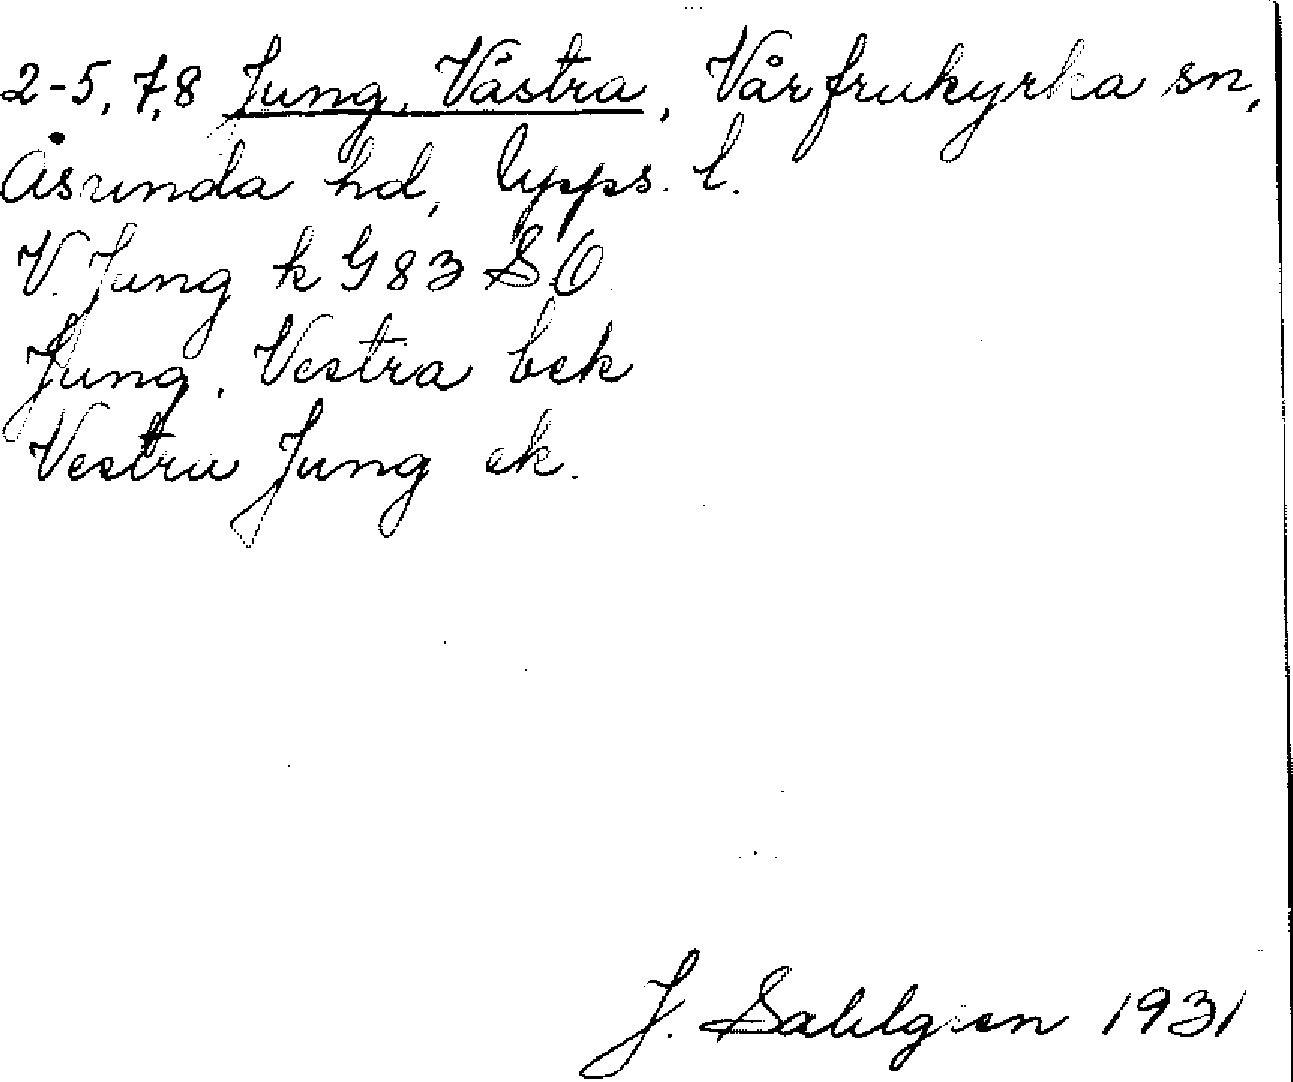 2-5, 7,8 Jung, Västra, Vårfrukyrka sn,
Åsunda hd, Upps. l.
V. Jung k G 83 S.O.
Jung, Vestra bek
Vestra Jung ek.
J. Sahlgren 1931